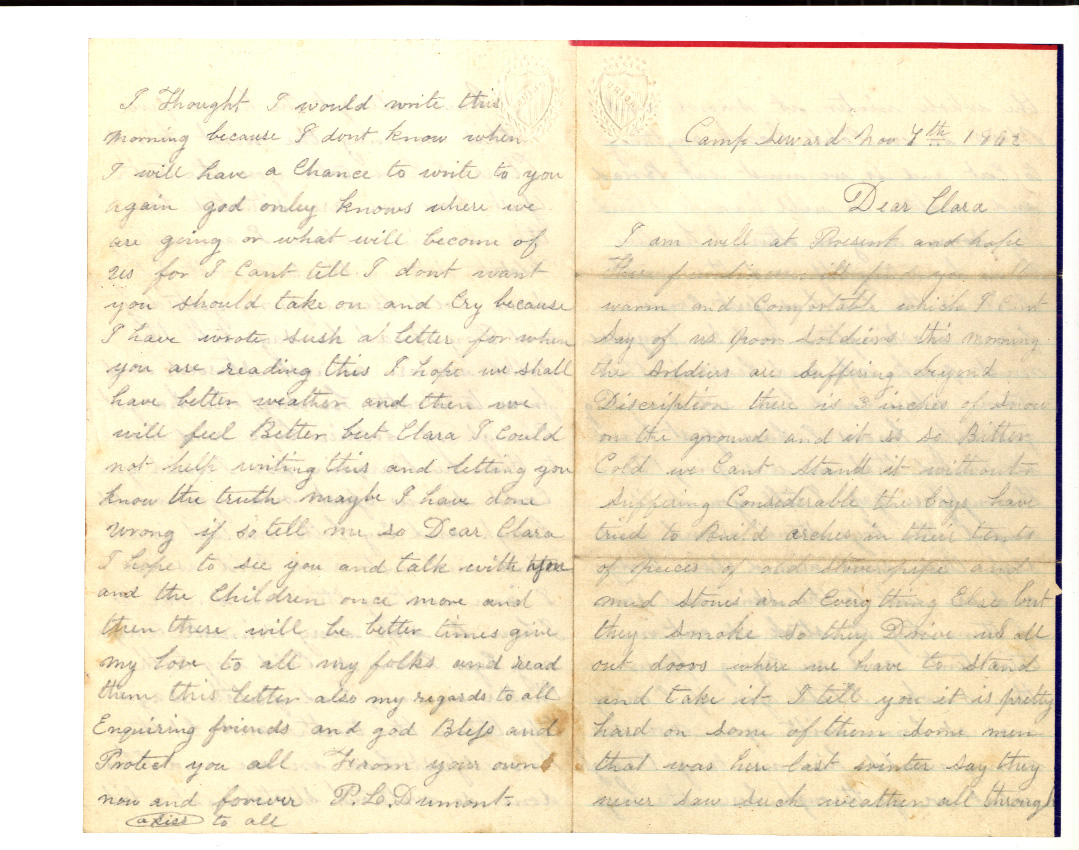 UNION
Camp Seward Nov 7th 1862
Dear Clara
I am well at Present and hope
these few lines will find you all
warm and Comfortable which I Cant
Say of us poor Soldiers this morning
the Soldiers are Suffering beyond
Discription there is 3 inches of Snow
on the ground and it is so Bitter
Cold we Cant Stand it without
Suffering Considerable the boys have
tried to Build arches in their tents
of peices of old Stove pipe and
mud Stones and Every thing Else but
they Smoke So they Drive us all
out doors where we have to Stand
and take it I tell you it is pretty
hard on Some of them Some men
that was here last winter Say they
never Saw Such weather all through
UNION
I Thought I would write this
morning because I dont know when
I will have a Chance to write to you
again god only knows where we
are going or what will become of
us for I Cant tell I dont want
you should take on and Cry because
I have wrote such a letter for when
you are reading this I hope we shall
have better weather and then we
will feel Better but Clara I Could
not help writing this and letting you
know the truth maybe I have done
wrong if so tell me so Dear Clara
I hope to see you and talk with you
and the Children once more and
then there will be better times give
my love to all my folks and read
them this letter also my regards to all
Enquiring friends and god Bless and
Protect you all From your own
now and forever P.L. Dumont.
a kiss to all